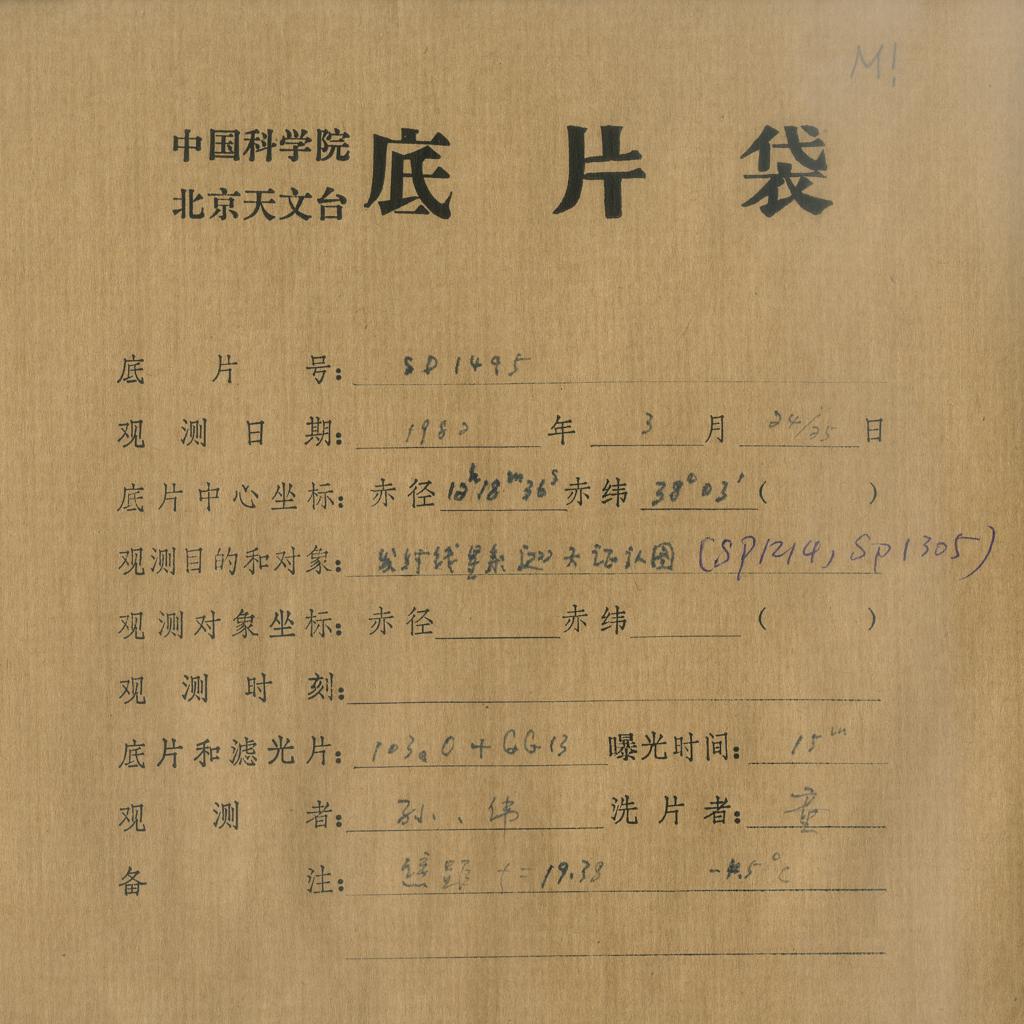 M!
中国科学院
北京天文台 底片袋
底片号: SP1495
观测日期: 1982 年 3 月 24/25 日
底片中心坐标: 赤径 12h18m36s 赤纬 38°03′ ( )
观测目的和对象: 发射线星系 证认图 (SP1214, SP1305)
观测对象坐标: 赤径 赤纬 ( )
观测时刻:
底片和滤光片: 103aO+GG13 曝光时间: 15m
观测者: 孙、纬 洗片者: 童
备注: 焦距 f=19.38 -4.5°C